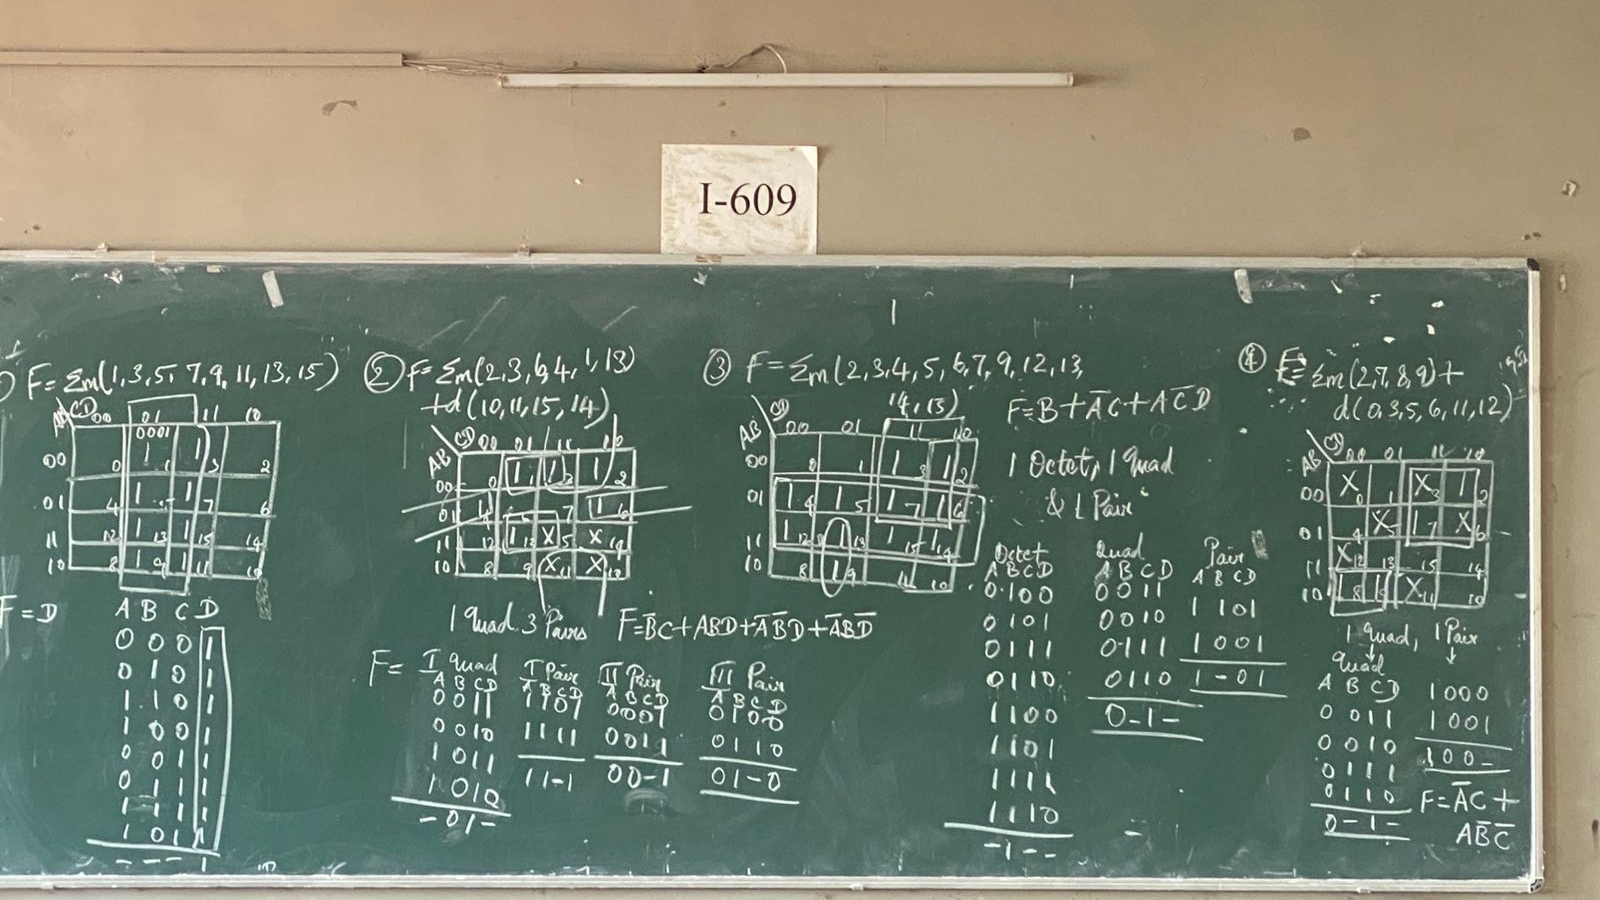 I-609
F = Σm(1,3,5,7,9,11,13,15)
CD
00 01 11 10
0001
00 1 1
0 1 3 2
01 1 1
4 5 7 6
11 1 1
12 13 15 14
10 1 1
8 9 11 10
F = D
A B C D
0 0 0 1
0 1 0 1
1 1 0 1
1 0 0 1
0 0 1 1
0 1 1 1
1 1 1 1
1 0 1 1
- - - 1
② F = Σm(2,3,6,4,1,13)
+d(10,11,15,14)
CD
AB 00 01 11 10
00 1 1 1
0 1 3 2
01 1 1
4 7 6
11 1 X X
12 13 15 14
10 X X
8 9 11 10
1 Quad 3 Pairs F=B̅C+ABD+A̅B̅D+A̅BD̅
F=
I Quad
A B C D
0 0 1 1
0 0 1 0
1 0 1 1
1 0 1 0
- 0 1 -
I Pair
A B C D
1 1 0 1
1 1 1 1
1 1 - 1
II Pair
A B C D
0 0 0 1
0 0 1 1
0 0 - 1
III Pair
A B C D
0 1 0 0
0 1 1 0
0 1 - 0
③ F = Σm(2,3,4,5,6,7,9,12,13,
14,15)
CD
AB 00 01 11 10
00 1 1
0 1 3 2
01 1 1 1 1
4 5 7 6
11 1 1 1 1
12 13 15 14
10 1
8 9 11 10
F=B+A̅C+AC̅D
1 Octet, 1 Quad
& 1 Pair
Octet
A B C D
0 1 0 0
0 1 0 1
0 1 1 1
0 1 1 0
1 1 0 0
1 1 0 1
1 1 1 1
1 1 1 0
- 1 - -
Quad
A B C D
0 0 1 1
0 0 1 0
0 1 1 1
0 1 1 0
0 - 1 -
Pair
A B C D
1 1 0 1
1 0 0 1
1 - 0 1
④ F= Σm(2,7,8,9)+
d(0,3,5,6,11,12)
CD
AB 00 01 11 10
00 X X 1
0 1 3 2
01 X 1 X
4 5 7 6
11 X
12 13 15 14
10 1 1 X
8 9 11 10
1 Quad, 1 Pair
Quad
A B C D
0 0 1 1
0 0 1 0
0 1 1 1
0 1 1 0
0 - 1 -
1 0 0 0
1 0 0 1
1 0 0 -
F=A̅C+
AB̅C̅